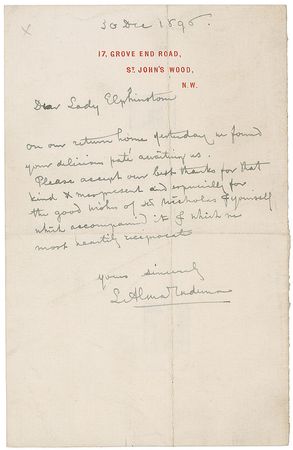 x
30 Dec 1896.
17, GROVE END ROAD,
ST. JOHN'S WOOD,
N.W.
Dear Lady Elphinstone
on our return home yesterday we found
your delicious paté awaiting us.
Please accept our best thanks for that
kind & present and especially for
the good wishes of Sir Nicholas & yourself
which accompanied it & which we
most heartily reciprocate
yours sincerely
L. Alma Tadema